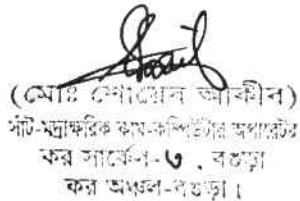 (মোঃ শোয়েব আকীব)
সাঁট-মুদ্রাক্ষরিক কাম-কম্পিউটার অপারেটর
কর সার্কেল-৬, বগুড়া
কর অঞ্চল-বগুড়া।